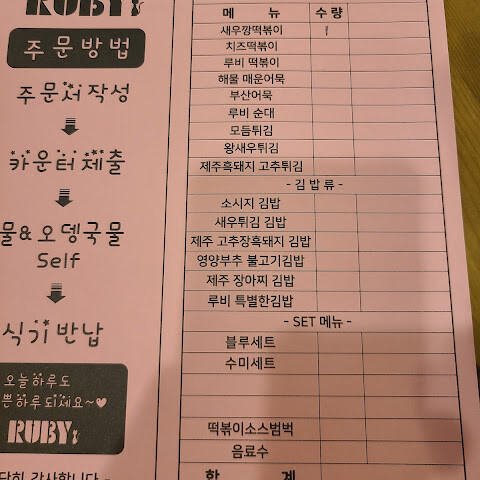 RUBY
주문방법
주문서작성
카운터제출
물&오뎅국물
Self
식기반납
오늘하루도
쁜하루되세요~♥
RUBY
- 감사합니다 -
메 뉴 수 량
새우깡떡볶이 1
치즈떡볶이
루비 떡볶이
해물 매운어묵
부산어묵
루비 순대
모듬튀김
왕새우튀김
제주흑돼지 고추튀김
- 김 밥 류 -
소시지 김밥
새우튀김 김밥
제주 고추장흑돼지 김밥
영양부추 불고기김밥
제주 장아찌 김밥
루비 특별한김밥
- SET 메뉴 -
블루세트
수미세트
떡볶이소스범벅
음료수
합 계